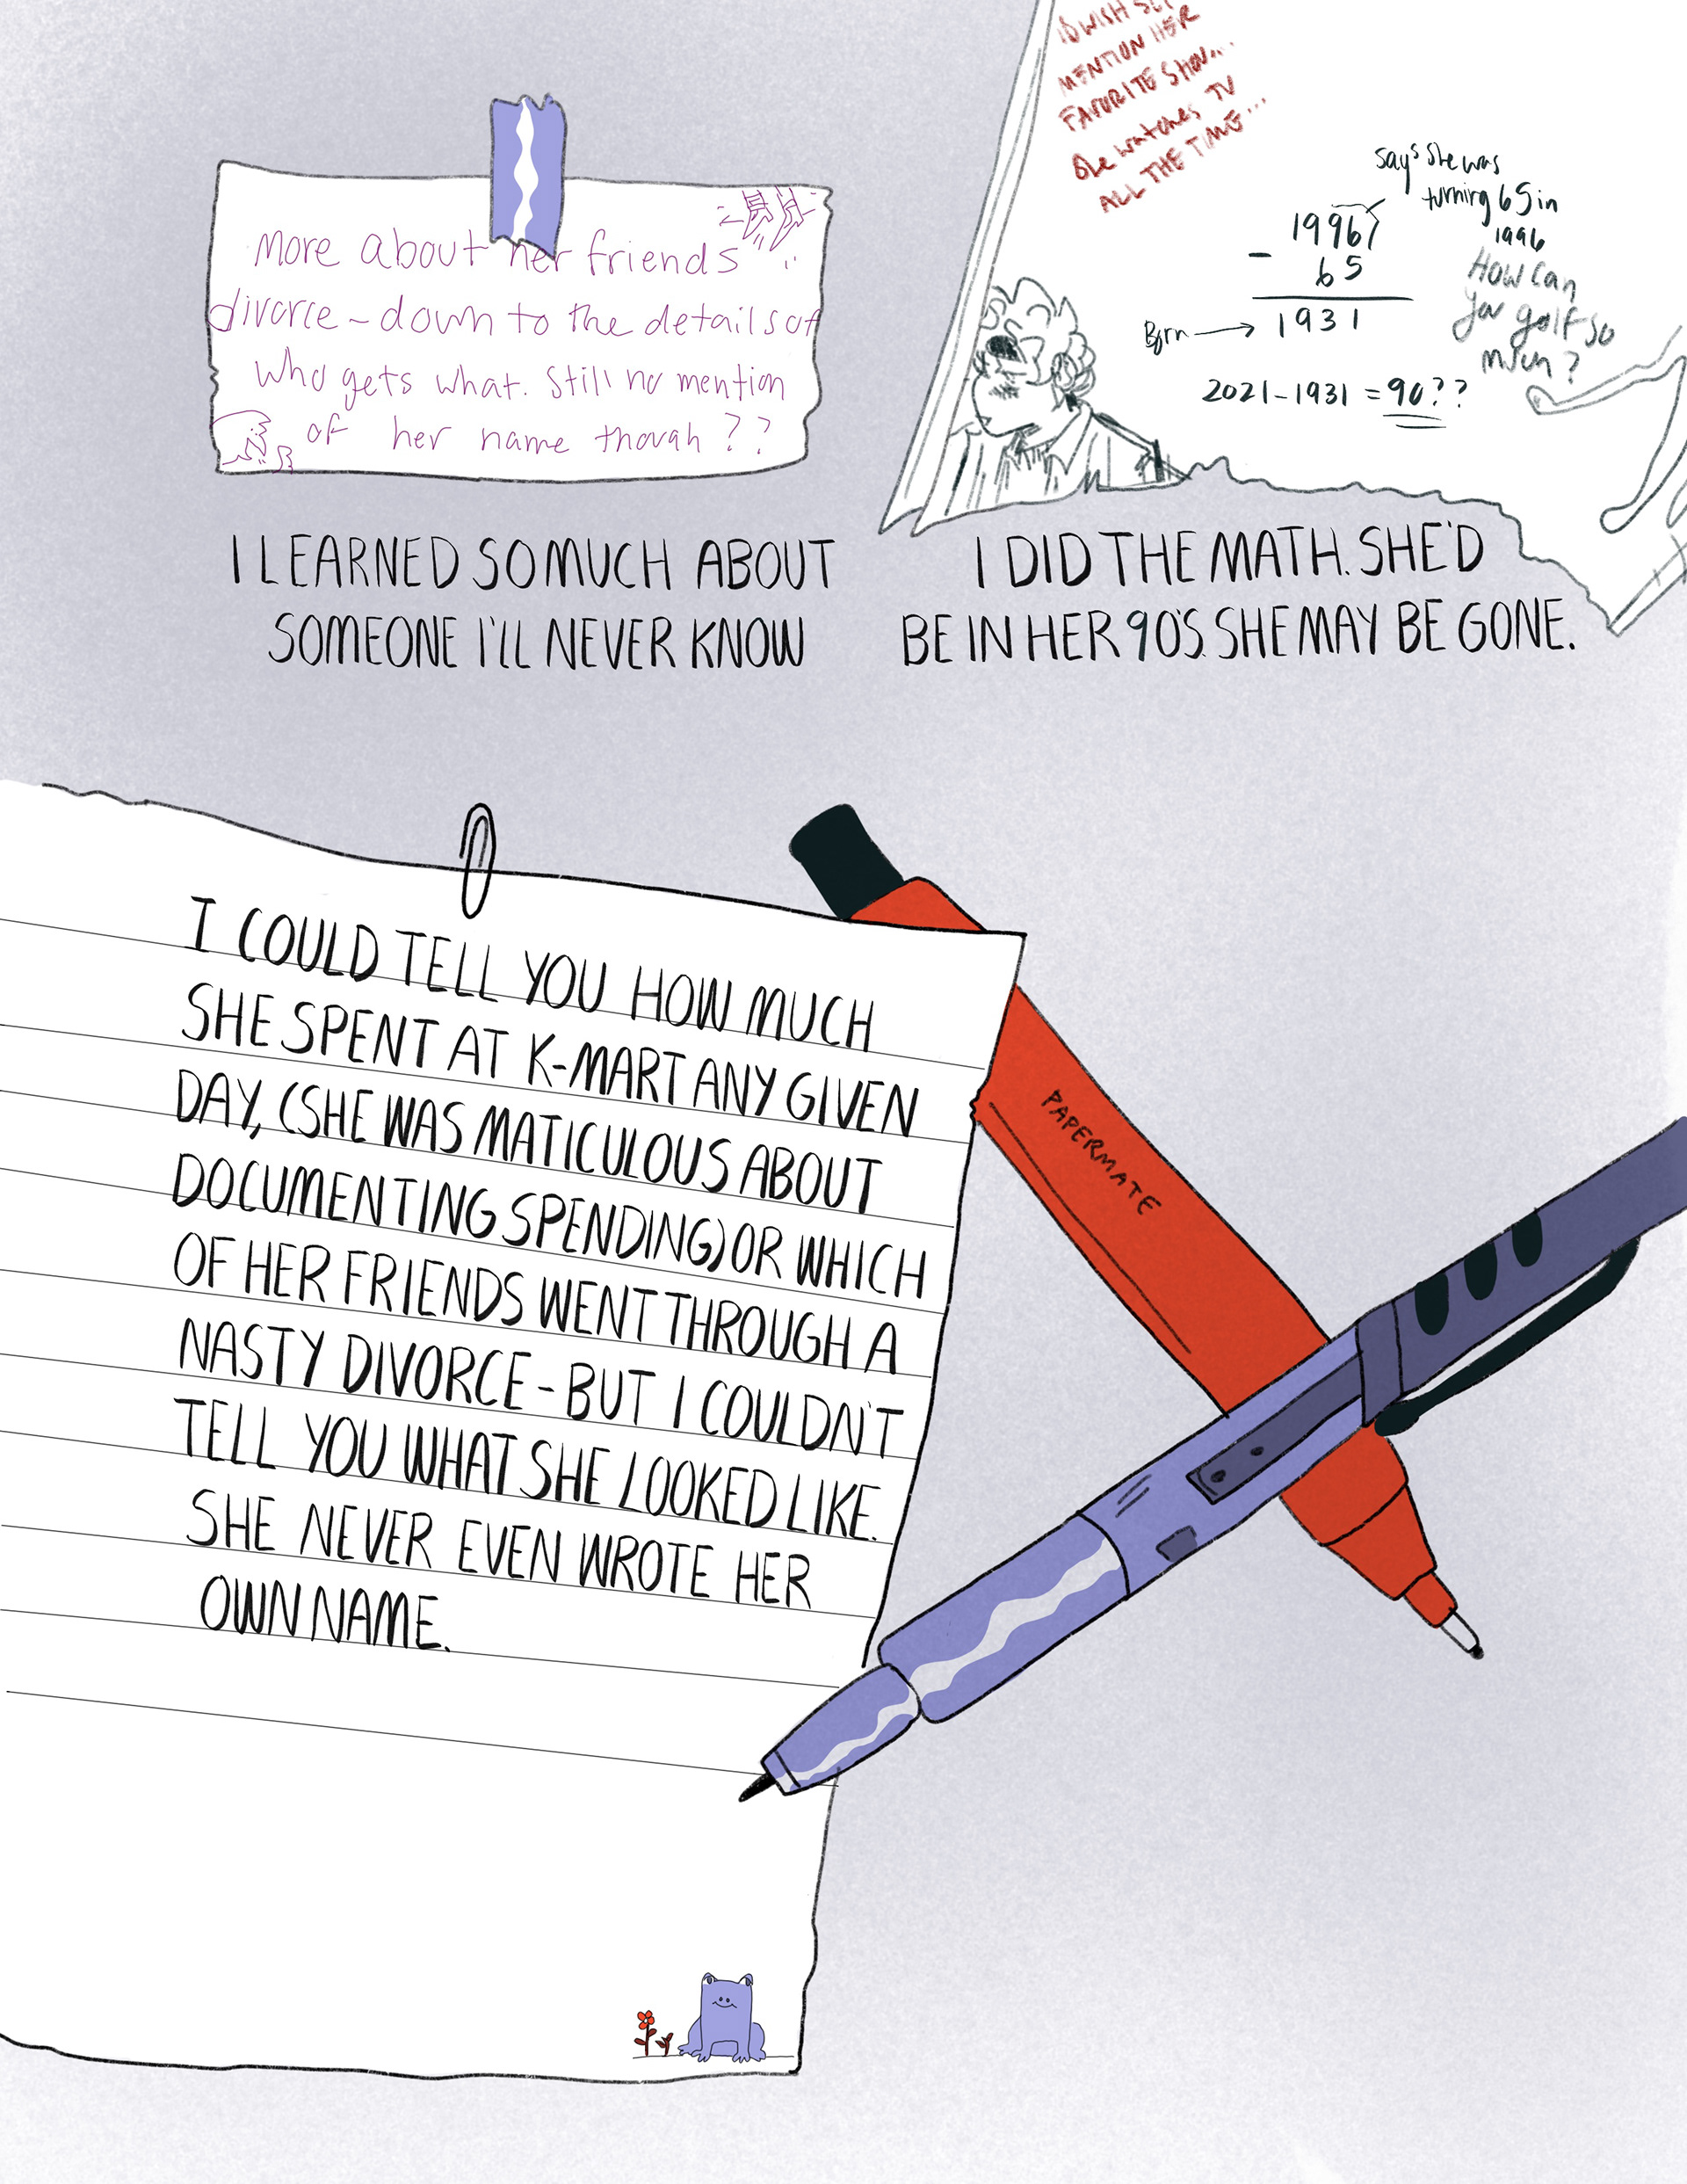 More about her friends
divorce - down to the details of
who gets what. Still no mention
of her name though??
I LEARNED SO MUCH ABOUT
SOMEONE I'LL NEVER KNOW
WISH
MENTION HER
FAVORITE SHOW...
She watches TV
ALL THE TIME...
says she was
turning 65 in
1996
1996
- 65
Born → 1931
2021-1931 = 90??
How can
you golf so
much?
I DID THE MATH. SHE'D
BE IN HER 90'S. SHE MAY BE GONE.
I COULD TELL YOU HOW MUCH
SHE SPENT AT K-MART ANY GIVEN
DAY, (SHE WAS MATICULOUS ABOUT
DOCUMENTING SPENDING) OR WHICH
OF HER FRIENDS WENT THROUGH A
NASTY DIVORCE - BUT I COULDN'T
TELL YOU WHAT SHE LOOKED LIKE.
SHE NEVER EVEN WROTE HER
OWN NAME.
PAPERMATE